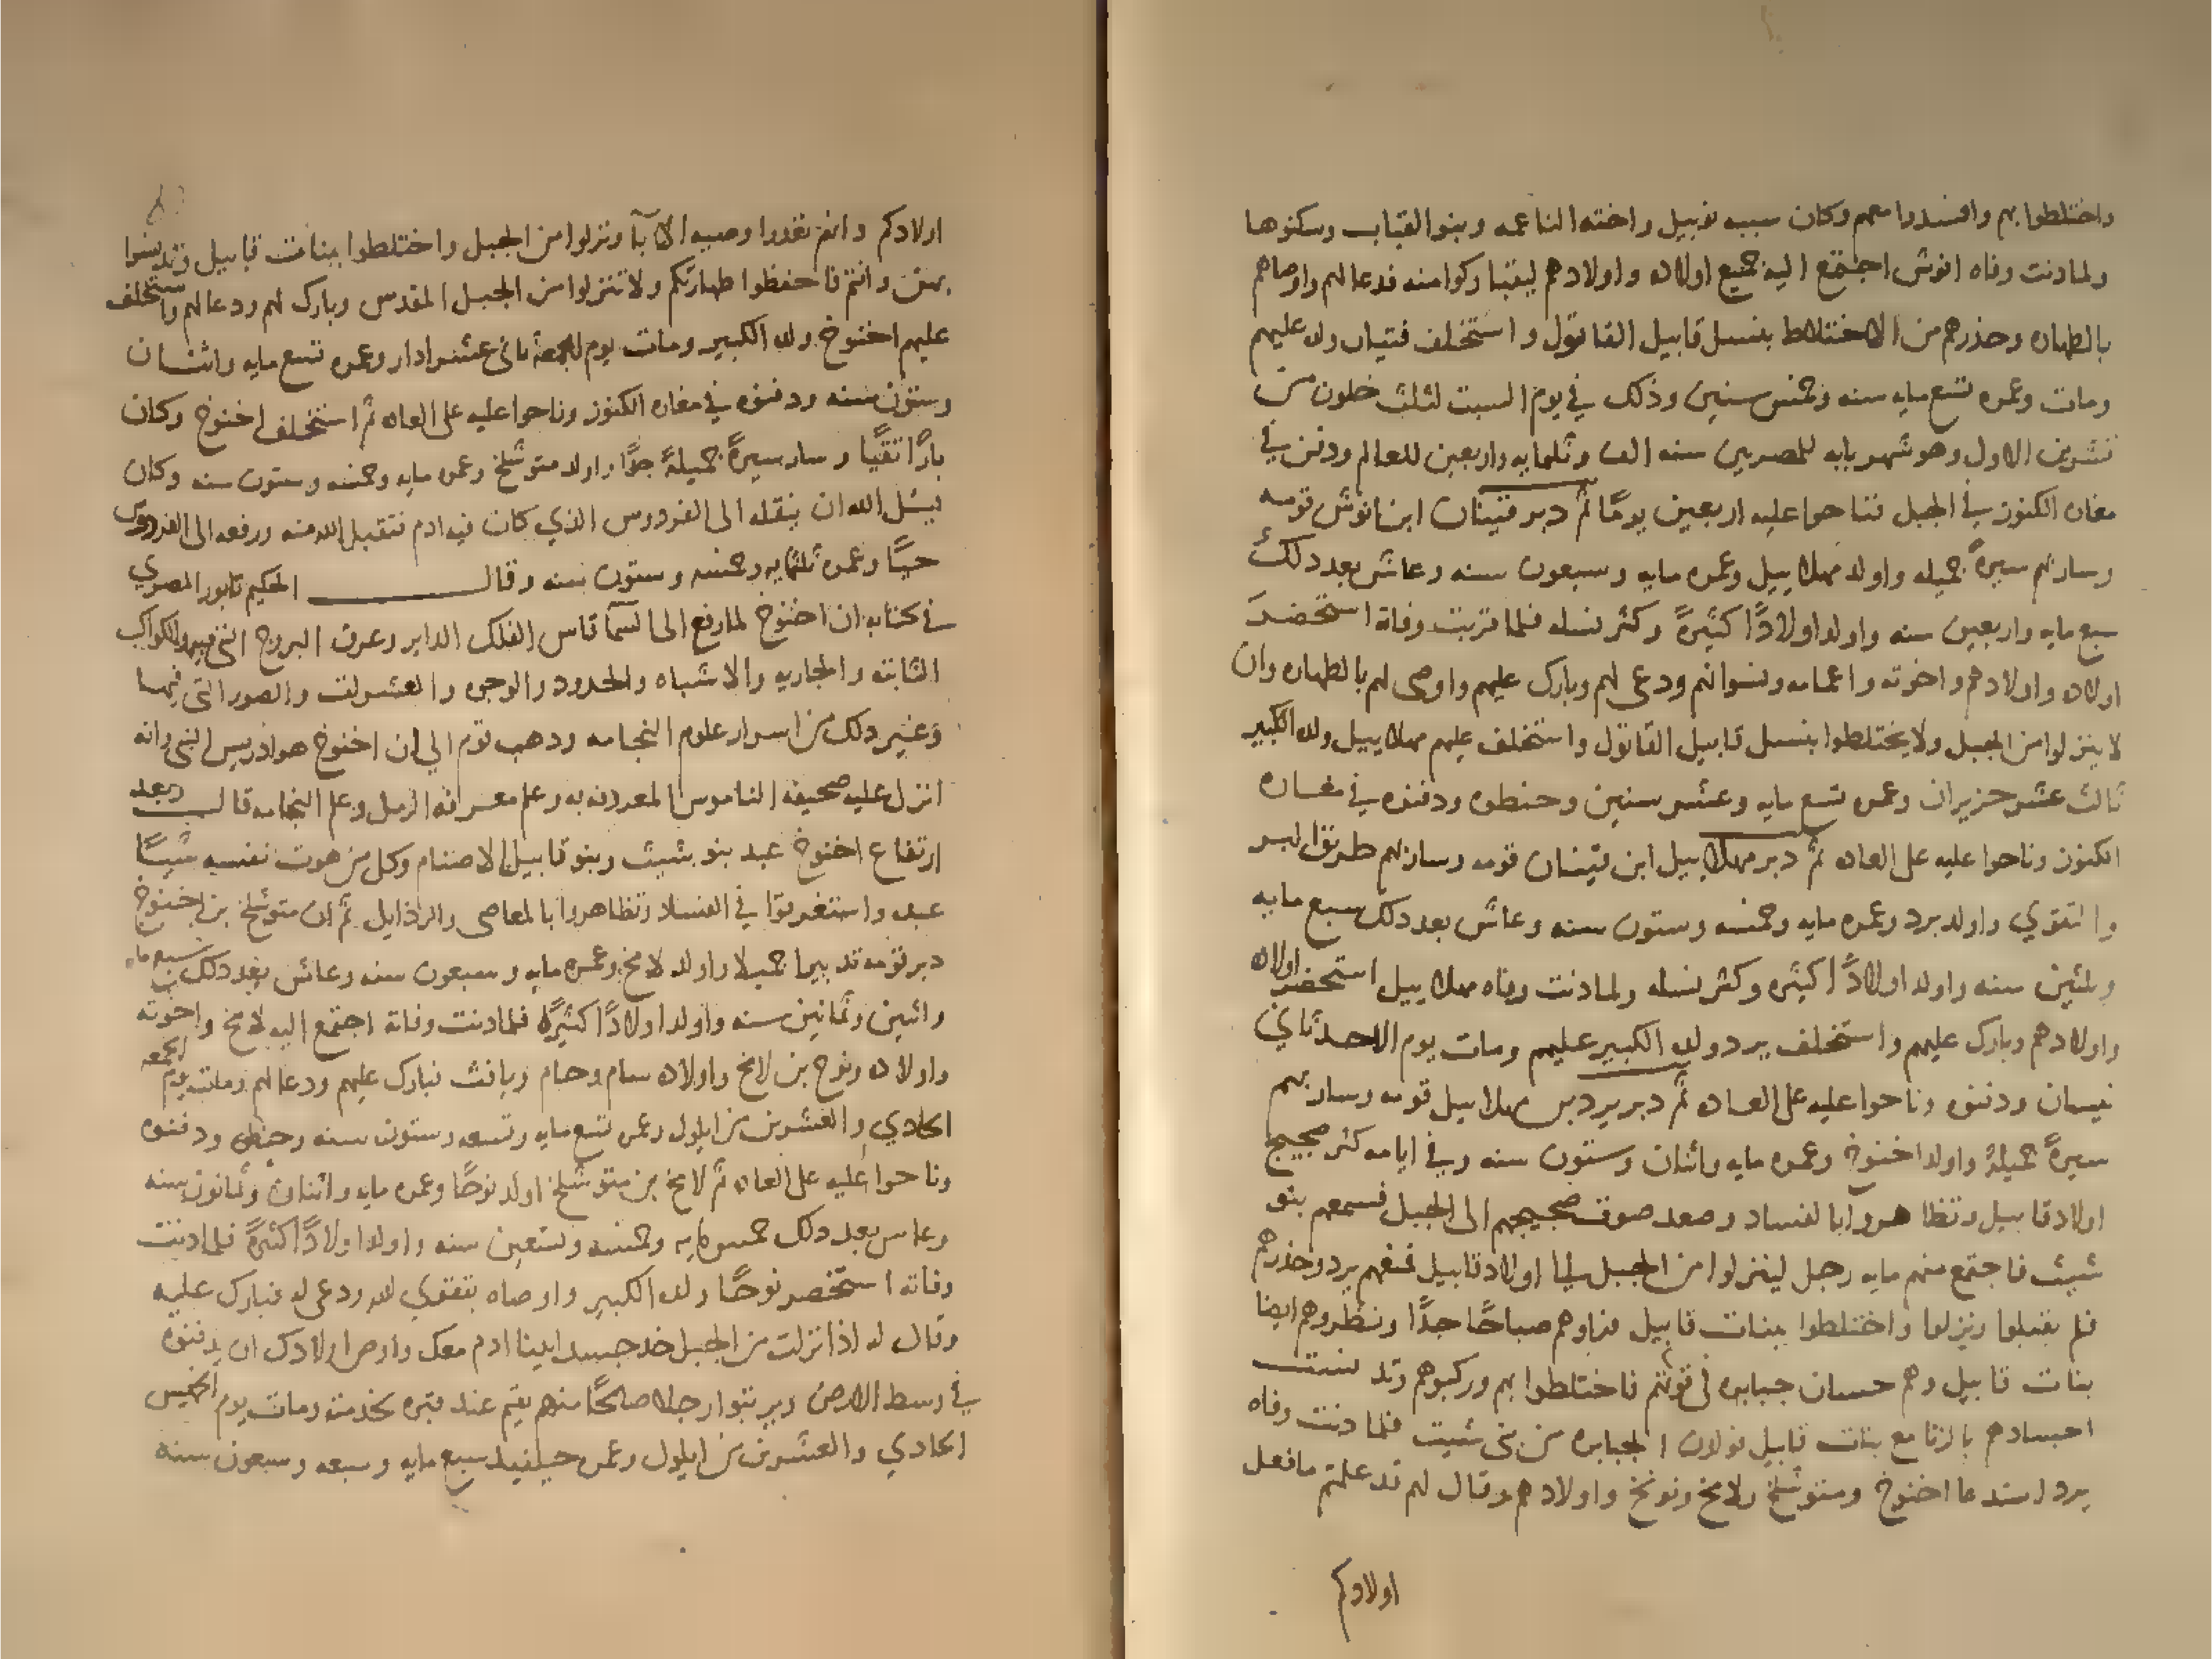 واختلطوا بهم وافسدوا معهم وكان سببه توبيل واخته الناعمه وبنوا القباب وسكنوها
ولما دنت وفاه انوش اجتمع اليه جميع اولاده واولادهم ليتباركوا منه فدعا لهم واوصاهم
بالطهاره وحذرهم من الاختلاط بنسل قابيل القاتول واستخلف قينان ولده عليهم
ومات وعمره تسع مايه سنه وخمس سنين وذلك في يوم السبت لثلث خلون من
تشرين الاول وهو شهر بابه للمصريين سنه الف وثلثمايه واربعين للعالم ودفن في
مغاره الكنوز في الجبل فناحوا عليه اربعين يومًا ثم دبر قينان ابن انوش قومه
وسار بهم سيرةً جميله واولد مهلاييل وعمره مايه وسبعون سنه وعاش بعد دلك
سبع مايه واربعين سنه واولد اولادًا كثيرةً وكثر نسله فلما قربت وفاة استحضر
اولاده واولادهم واخوته واعمامه ونسوانهم ودعى لهم وبارك عليهم واوصى لهم بالطهاره وان
لا ينزلوا من الجبل ولا يختلطوا بنسل قابيل القاتول واستخلف عليهم مهلاييل ولده الكبير
ثالث عشر حزيران وعمره تسع مايه وعشر سنين وحنطوه ودفنوه في مغاره
الكنوز وناحوا عليه على العاده ثم دبر مهلاييل ابن قينان قومه وسار بهم طريق البر
والتقوي واولد يرد وعمره مايه وخمسه وستون سنه وعاش بعد دلك سبع مايه
وثلثين سنه واولد اولادًا كثيره وكثر نسله ولما دنت وفاه مهلاييل استحضر اولاده
واولادهم وبارك عليهم واستخلف يرد ولده الكبير عليهم ومات يوم الاحد ثاني
نيسان ودفنوه وناحوا عليه على العاده ثم دبر يرد بن مهلاييل قومه وسار بهم
سيرةً جميلةً واولد اخنوخ وعمره مايه واثنان وستون سنه وفي ايامه كثر ضجيج
اولاد قابيل وتظاهروا بالفساد وصعد صوت ضجيجهم الى الجبل فسمعهم بنو
شيث فاجتمع منهم مايه رجل لينزلوا من الجبل الى اولاد قابيل فمنعهم يرد وحذرهم
فلم يقبلوا ونزلوا واختلطوا ببنات قابيل فراوهم صباحًا جدًّا ونظروهم ايضا
بنات قابيل وهم حسان جبابره في قوتهم فاختلطوا بهم وركبوهم وتدنست
اجسادهم بالزنا مع بنات قابيل فولدن الجبابره من بني شيث فلما دنت وفاه
يرد استدعا اخنوخ ومتوشلخ ولامخ ونوخ واولادهم وقال لهم قد علمتم ما فعل
اولادكم
اولادكم وانهم تعدوا وصيه الابآ ونزلوا من الجبل واختلطوا ببنات قابيل وتدنسوا
بهن وانتم فاحفظوا طهارتكم ولا تنزلوا من الجبل المقدس وبارك لهم ودعا لهم واستخلف
عليهم اخنوخ ولده الكبير ومات يوم الجمعة ثاني عشر ادار وعمره تسع مايه واثنان
وستون سنه ودفنوه في مغاره الكنوز وناحوا عليه على العاده ثم استخلف اخنوخ وكان
بارًّا تقيًّا وسار سيرةً جميلةً جدًّا واولد متوشلخ وعمره مايه وخمسه وستون سنه وكان
يسل الله ان ينقله الى الفردوس الذي كان فيه ادم فتقبل الله منه ورفعه الى الفردوس
حيًّا وعمره ثلثمايه وخمسه وستون سنه وقال الحكيم المصري
في كتابه ان اخنوخ لما رفع الى السمآ قاس الفلك الداير وعرف البروج التي فيه والكواكب
الثابته والجاريه والاشباه والحدود والوجوه والصور التي فيها
وغير دلك من اسرار علوم النجامه ودهب قوم الي ان اخنوخ هو ادريس النبي وانه
انزل عليه صحيفه الناموس المعروفه به وعلم معرفه الرمل وعلم النجامه قال وبعد
ارتفاع اخنوخ عبد بنو شيث وبنو قابيل الاصنام وكل من هوت نفسه شيًا
عبده واستغرقوا في الفساد وتظاهروا بالمعاصي والرذايل ثم ان متوشلخ بن اخنوخ
دبر قومه تدبيرا جميلا واولد لامخ وعمره مايه وسبعون سنه وعاش بعد دلك سبع مايه
واثنين وثمانين سنه واولد اولادًا كثيرًه فلما دنت وفاة اجتمع اليه لامخ واخوته
واولاده ونوح بن لامخ واولاده سام وحام ويافث فبارك عليهم ودعا لهم ومات يوم الجمعه
الحادي والعشرين من ايلول وعمره تسع مايه وتسعه وستون سنه وحنطوه ودفنوه
وناحوا عليه على العاده ثم لامخ بن متوشلخ اولد نوحًا وعمره مايه واثنان وثمانون سنه
وعاش بعد دلك خمسمايه وخمسه وتسعين سنه واولد اولادًا كثيرةً فلما دنت
وفاته استحضر نوحًا ولده الكبير واوصاه بتقوي الله ودعى له فبارك عليه
وقال له اذا نزلت من الجبل خد جسد ابينا ادم معك واوص اولادك ان يدفنوه
في وسط الارض ويرتبوا رجلا صالحًا منهم يقيم عند قبره بخدمته ومات يوم الخميس
الحادي والعشرين من ايلول وعمره حينيد سبع مايه وسبعه وسبعون سنه